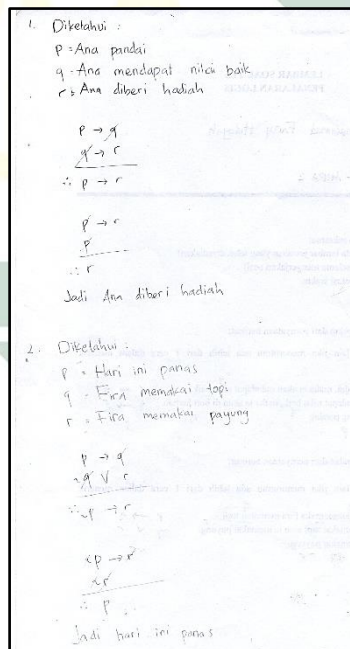 1. Diketahui :
P = Ana pandai
q = Ana mendapat nilai baik
r = Ana diberi hadiah
P → q
q → r
∴ P → r
P → r
P
∴ r
Jadi Ana diberi hadiah
2. Diketahui :
P = Hari ini panas
q = Fira memakai topi
r = Fira memakai payung
P → q
~q V r
∴ ~p → r
~p → r
~r
∴ P
Jadi hari ini panas